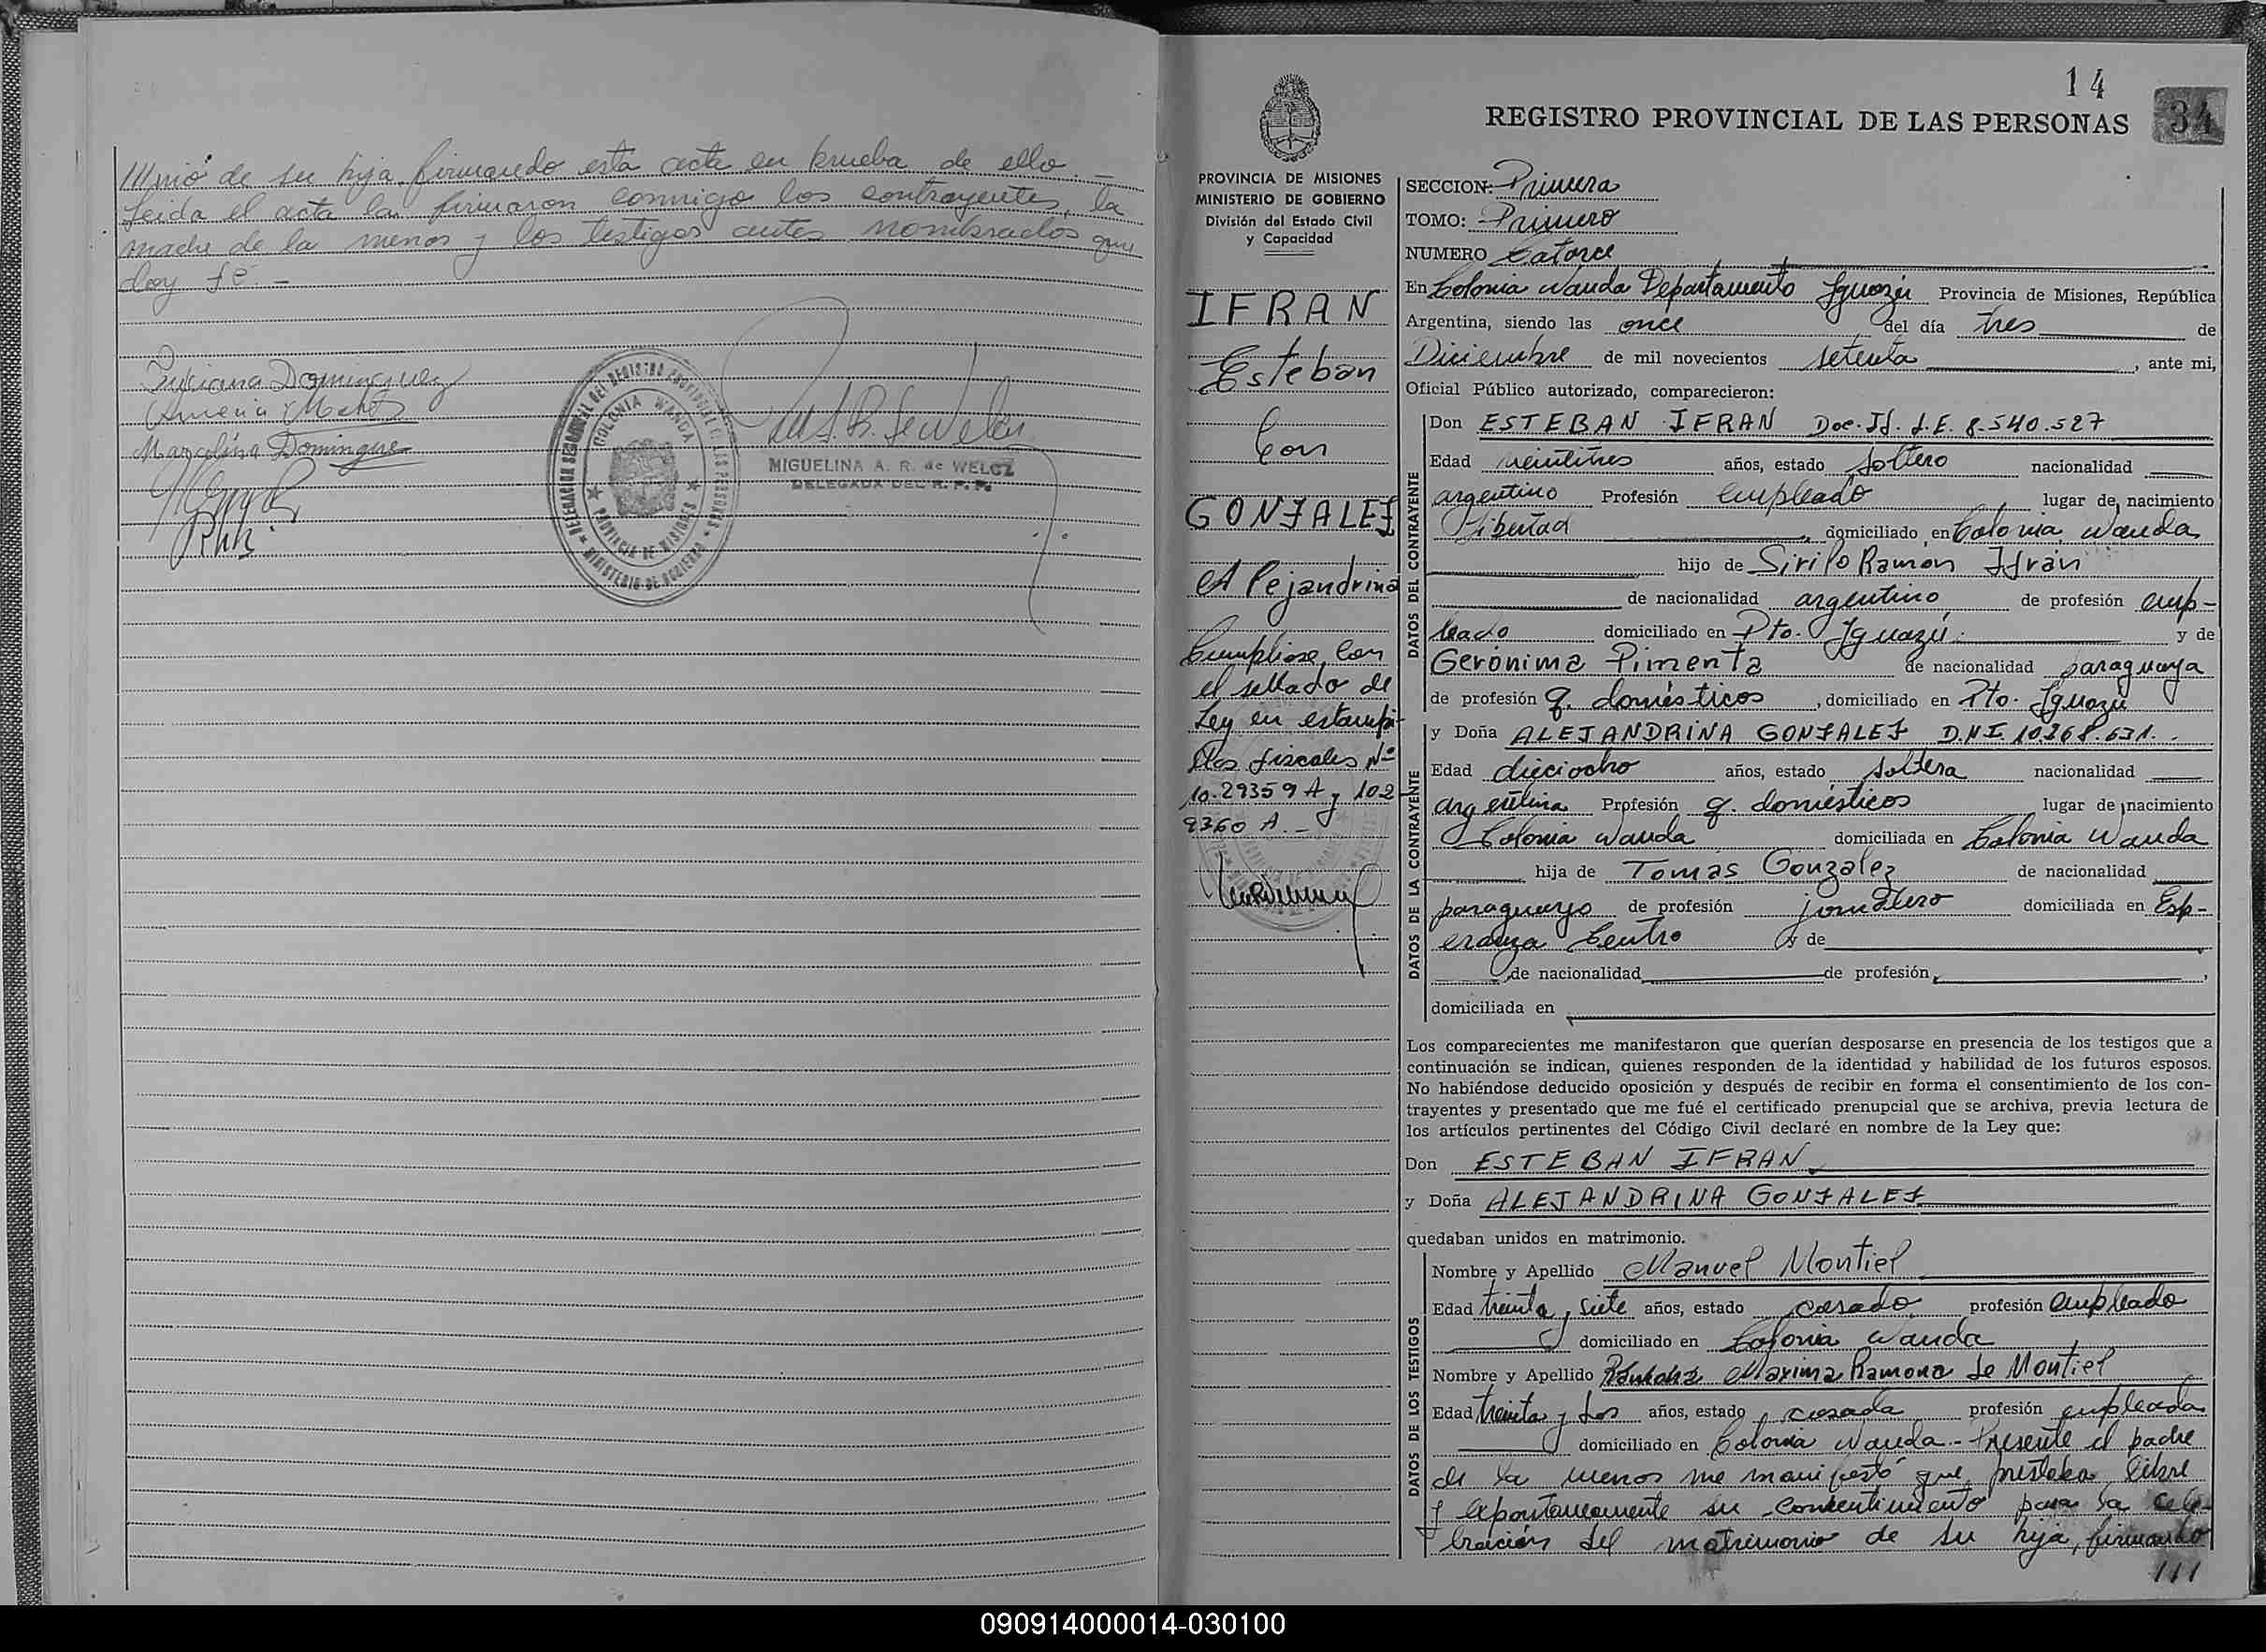 ///nió de su hija firmando esta acta en prueba de ello. -
Leida el acta la firmaron conmigo los contrayentes, la
madre de la menor y los testigos antes nombrados que
doy fé. -
Dominguez
Marcelina Dominguez
DELEGACION SECCIONAL DEL REGISTRO PROVINCIAL DE LAS PERSONAS
COLONIA WANDA
PROVINCIA DE MISIONES
MINISTERIO DE GOBIERNO
MIGUELINA A. R. de WELCZ
DELEGADA DEL R. P. P.
14
34
REGISTRO PROVINCIAL DE LAS PERSONAS
PROVINCIA DE MISIONES
MINISTERIO DE GOBIERNO
División del Estado Civil
y Capacidad
IFRAN
Esteban
Con
GONZALEZ
Alejandrina
Cumpliose con
el sellado de
Ley en estampi-
llas fiscales Nº
10.29359 A y 102
9360 A. -
SECCION: Primera
TOMO: Primero
NUMERO Catorce
En Colonia Wanda Departamento Iguazú Provincia de Misiones, República
Argentina, siendo las once del día tres de
Diciembre de mil novecientos setenta, ante mi,
Oficial Público autorizado, comparecieron:
DATOS DEL CONTRAYENTE
Don ESTEBAN IFRAN Doc. Id. L.E. 8.540.527
Edad veintitres años, estado soltero nacionalidad
argentino Profesión empleado lugar de nacimiento
Libertad, domiciliado en Colonia Wanda
hijo de Sirilo Ramon Ifrán
de nacionalidad argentino de profesión emp-
leado domiciliado en Pto. Iguazú y de
Gerónima Pimenta de nacionalidad paraguaya
de profesión q. domésticos, domiciliado en Pto. Iguazú
DATOS DE LA CONTRAYENTE
y Doña ALEJANDRINA GONZALEZ D.N.I. 10.268.631.
Edad dieciocho años, estado soltera nacionalidad
argentina Profesión q. domésticos lugar de nacimiento
Colonia Wanda domiciliada en Colonia Wanda
hija de Tomas Gonzalez de nacionalidad
paraguayo de profesión jornalero domiciliada en Esp-
eranza Centro y de
de nacionalidad de profesión,
domiciliada en
Los comparecientes me manifestaron que querían desposarse en presencia de los testigos que a
continuación se indican, quienes responden de la identidad y habilidad de los futuros esposos.
No habiéndose deducido oposición y después de recibir en forma el consentimiento de los con-
trayentes y presentado que me fué el certificado prenupcial que se archiva, previa lectura de
los artículos pertinentes del Código Civil declaré en nombre de la Ley que:
Don ESTEBAN IFRAN
y Doña ALEJANDRINA GONZALEZ
quedaban unidos en matrimonio.
DATOS DE LOS TESTIGOS
Nombre y Apellido Manuel Montiel
Edad treinta y siete años, estado casado profesión empleado
domiciliado en Colonia Wanda
Nombre y Apellido Maxima Ramona de Montiel
Edad treinta y dos años, estado casada profesión empleada
domiciliado en Colonia Wanda - Presente el padre
de la menor me manifestó que prestaba libre
y expontaneamente su consentimiento para la cele-
bración del matrimonio de su hija, firmando
///
090914000014-030100